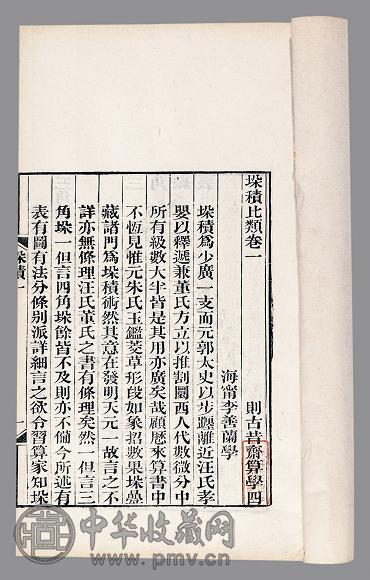 垛積比類卷一
則古昔齋算學四
海甯李善蘭學
垛積為少廣一支而元郭太史以步躔離近汪氏孝
嬰以釋遞兼董氏方立以推割圜西人代數微分中
所有級數大半皆是其用亦廣矣哉顧歷來算書中
不恆見惟元朱氏玉鑑茭草形段如象招數果垛疊
藏諸門為垛積術然其意在發明天元一故言之不
詳亦無條理汪氏董氏之書有條理矣然一但言三
角垛一但言四角垛餘皆不及則亦不備今所述有
表有圖有法分條別派詳細言之欲令習算家知垛
垛積一
一
中华收藏网
www.pmv.cn